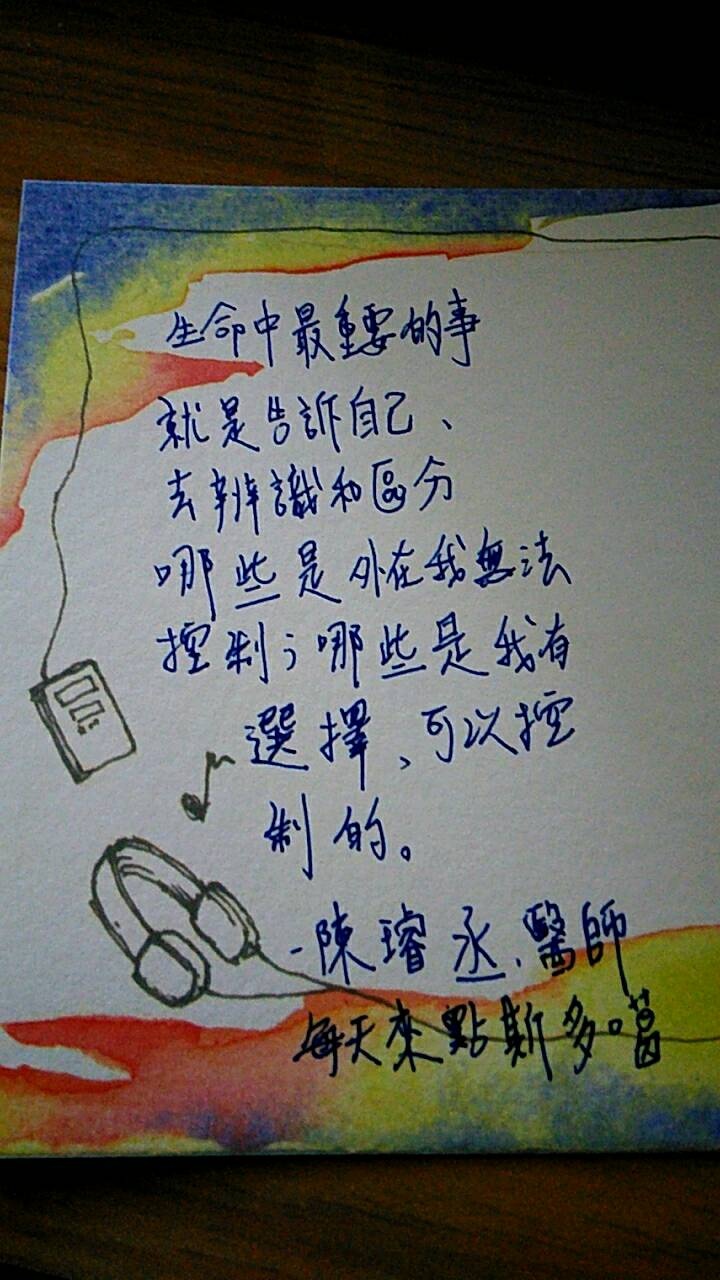 生命中最重要的事
就是告訴自己、
去辨識和區分
哪些是外在我無法
控制；哪些是我有
選擇、可以控
制的。
-陳璿丞.醫師
每天來點斯多噶